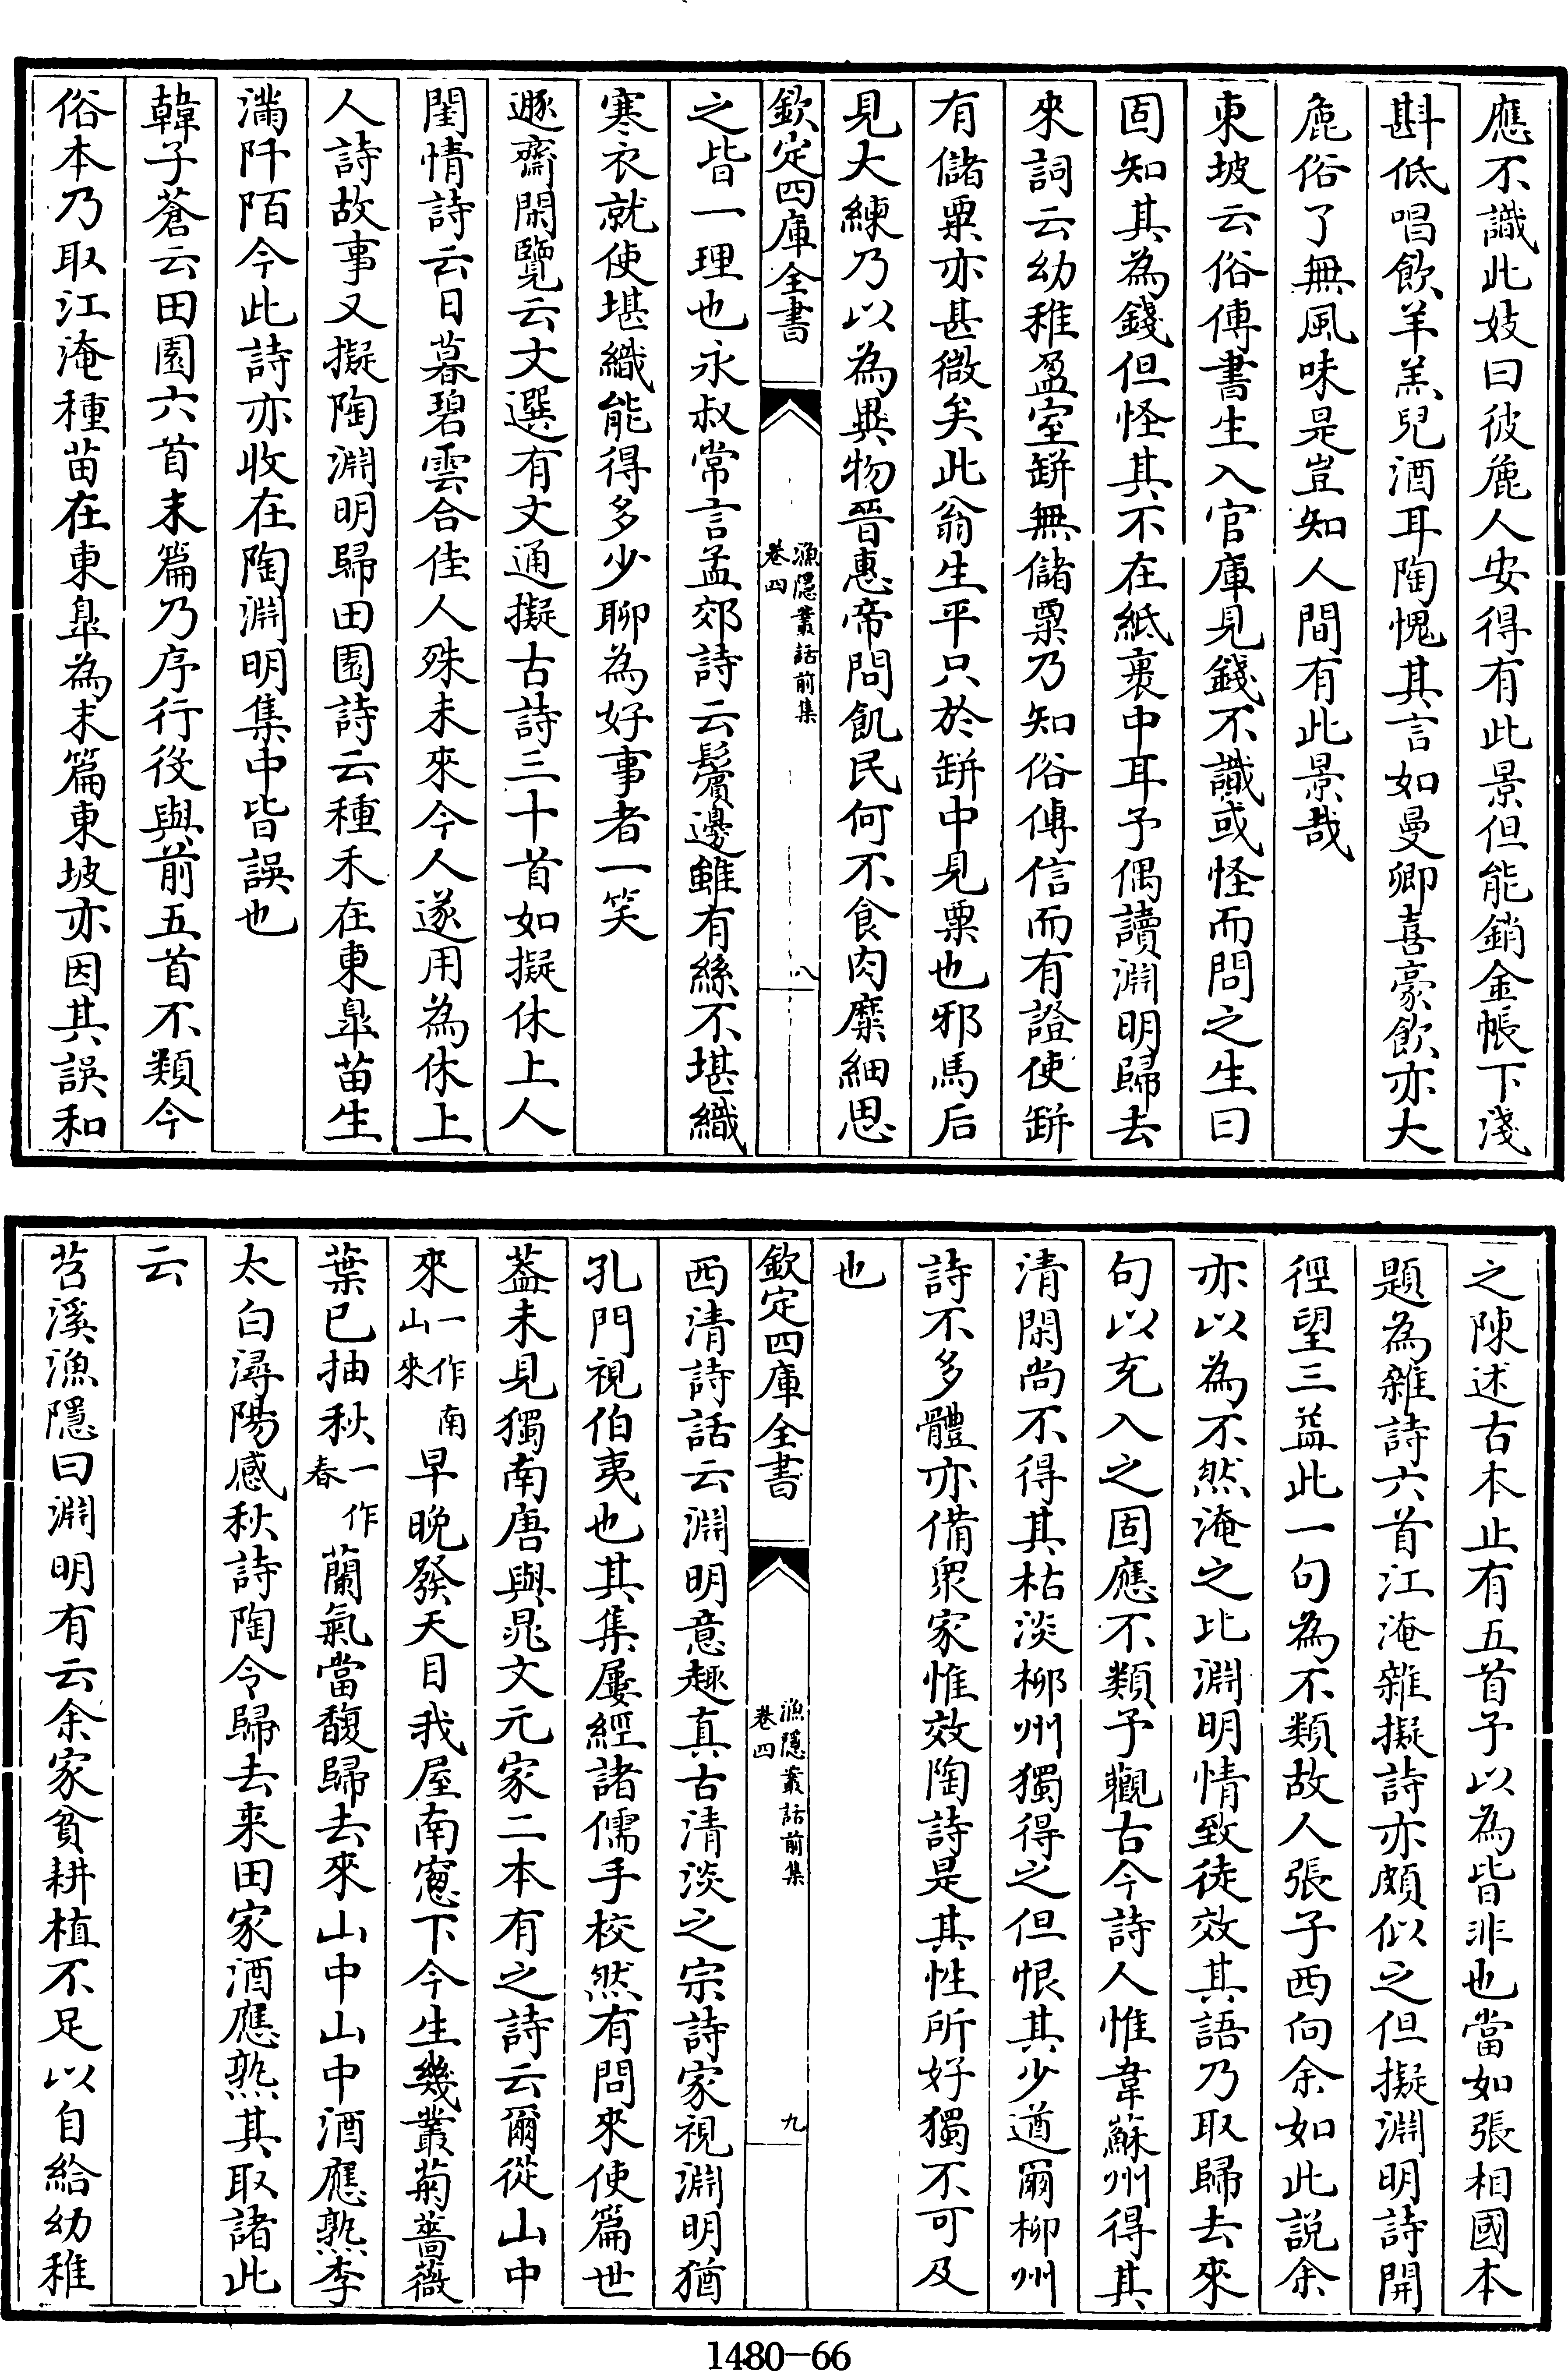 應不識此妓曰彼麁人安得有此景但能銷金帳下淺
斟低唱飲羊羔兒酒耳陶愧其言如曼卿喜豪飲亦大
麁俗了無風味是豈知人間有此景哉
東坡云俗傳書生入官庫見錢不識或怪而問之生曰
固知其為錢但怪其不在紙裹中耳予偶讀淵明歸去
來詞云幼稚盈室缾無儲粟乃知俗傳信而有證使缾
有儲粟亦甚微矣此翁生平只於缾中見粟也邪馬后
見大練乃以為異物晉惠帝問飢民何不食肉糜細思
欽定四庫全書
漁隱叢話前集
卷四
八
之皆一理也永叔常言孟郊詩云鬢邊雖有絲不堪織
寒衣就使堪織能得多少聊為好事者一笑
遯齋閑覽云文選有文通擬古詩三十首如擬休上人
閨情詩云日暮碧雲合佳人殊未來今人遂用為休上
人詩故事又擬陶淵明歸田園詩云種禾在東臯苗生
滿阡陌今此詩亦收在陶淵明集中皆誤也
韓子蒼云田園六首末篇乃序行役與前五首不類今
俗本乃取江淹種苗在東臯為末篇東坡亦因其誤和
之陳述古本止有五首予以為皆非也當如張相國本
題為雜詩六首江淹雜擬詩亦頗似之但擬淵明詩開
徑望三益此一句為不類故人張子西向余如此說余
亦以為不然淹之比淵明情致徒效其語乃取歸去來
句以充入之固應不類予觀古今詩人惟韋蘇州得其
清閑尚不得其枯淡柳州獨得之但恨其少遒爾柳州
詩不多體亦備眾家惟效陶詩是其性所好獨不可及
也
欽定四庫全書
漁隱叢話前集
卷四
九
西清詩話云淵明意趣真古清淡之宗詩家視淵明猶
孔門視伯夷也其集屢經諸儒手校然有問來使篇世
葢未見獨南唐與晁文元家二本有之詩云爾從山中
來一作南山來早晚發天目我屋南窻下今生幾叢菊薔薇
葉已抽秋一作春蘭氣當馥歸去來山中山中酒應熟李
太白潯陽感秋詩陶令歸去来田家酒應熟其取諸此
云
苕溪漁隱曰淵明有云余家貧耕植不足以自給幼稚
1480-66